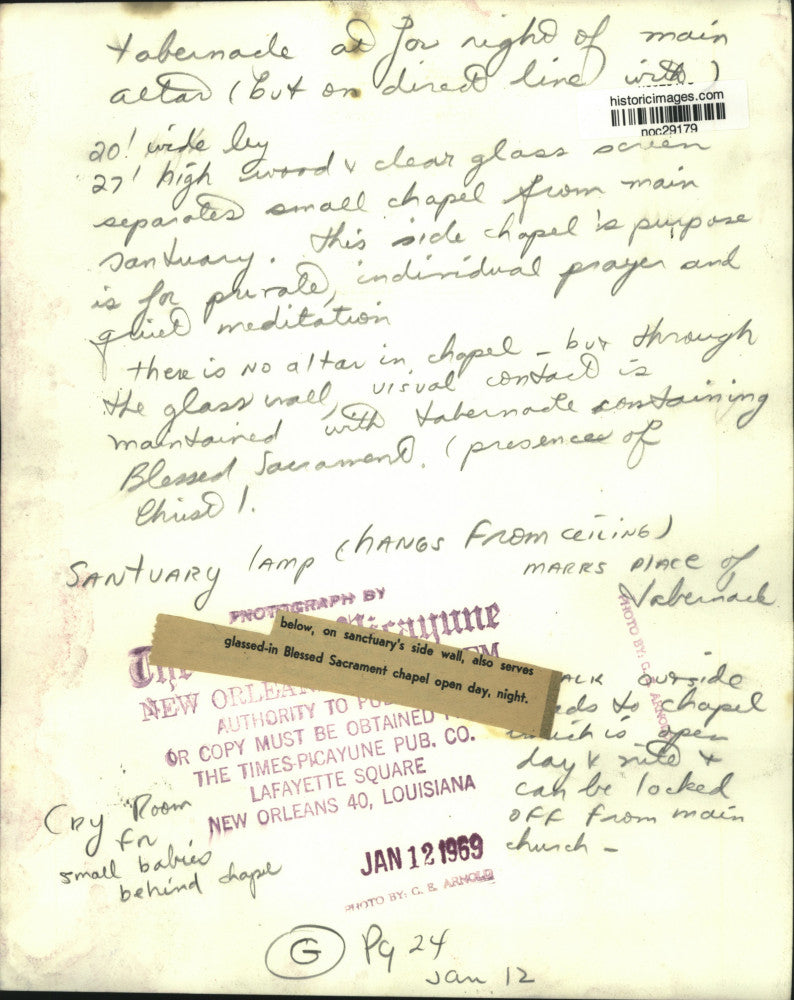 tabernacle at for right of main
altar (but on direct line with)
historicimages.com
noc29179
20' wide by
27' high wood & clear glass screen
separates small chapel from main
sanctuary. this side chapel's purpose
is for private, individual prayer and
quiet meditation
there is no altar in chapel - but through
the glass wall, visual contact is
maintained with tabernacle containing
Blessed Sacrament. (presence of
Christ).
SANTUARY lAMP (HANGS FROM CEILING)
MARKS PlACE of
tabernacle
PHOTOGRAPH BY
The Picayune
below, on sanctuary's side wall, also serves
glassed-in Blessed Sacrament chapel open day, night.
NEW ORLEAN
AUTHORITY TO PUB
OR COPY MUST BE OBTAINED
THE TIMES-PICAYUNE PUB. CO.
LAFAYETTE SQUARE
NEW ORLEANS 40, LOUISIANA
PHOTO BY: G. E. ARNOLD
ALK outside
ds to chapel
which is open
day & nite &
can be locked
OFF from main
church -
Cry Room
for
small babies
behind chapel
JAN 12 1969
PHOTO BY: G. E. ARNOLD
G Pg 24
Jan 12